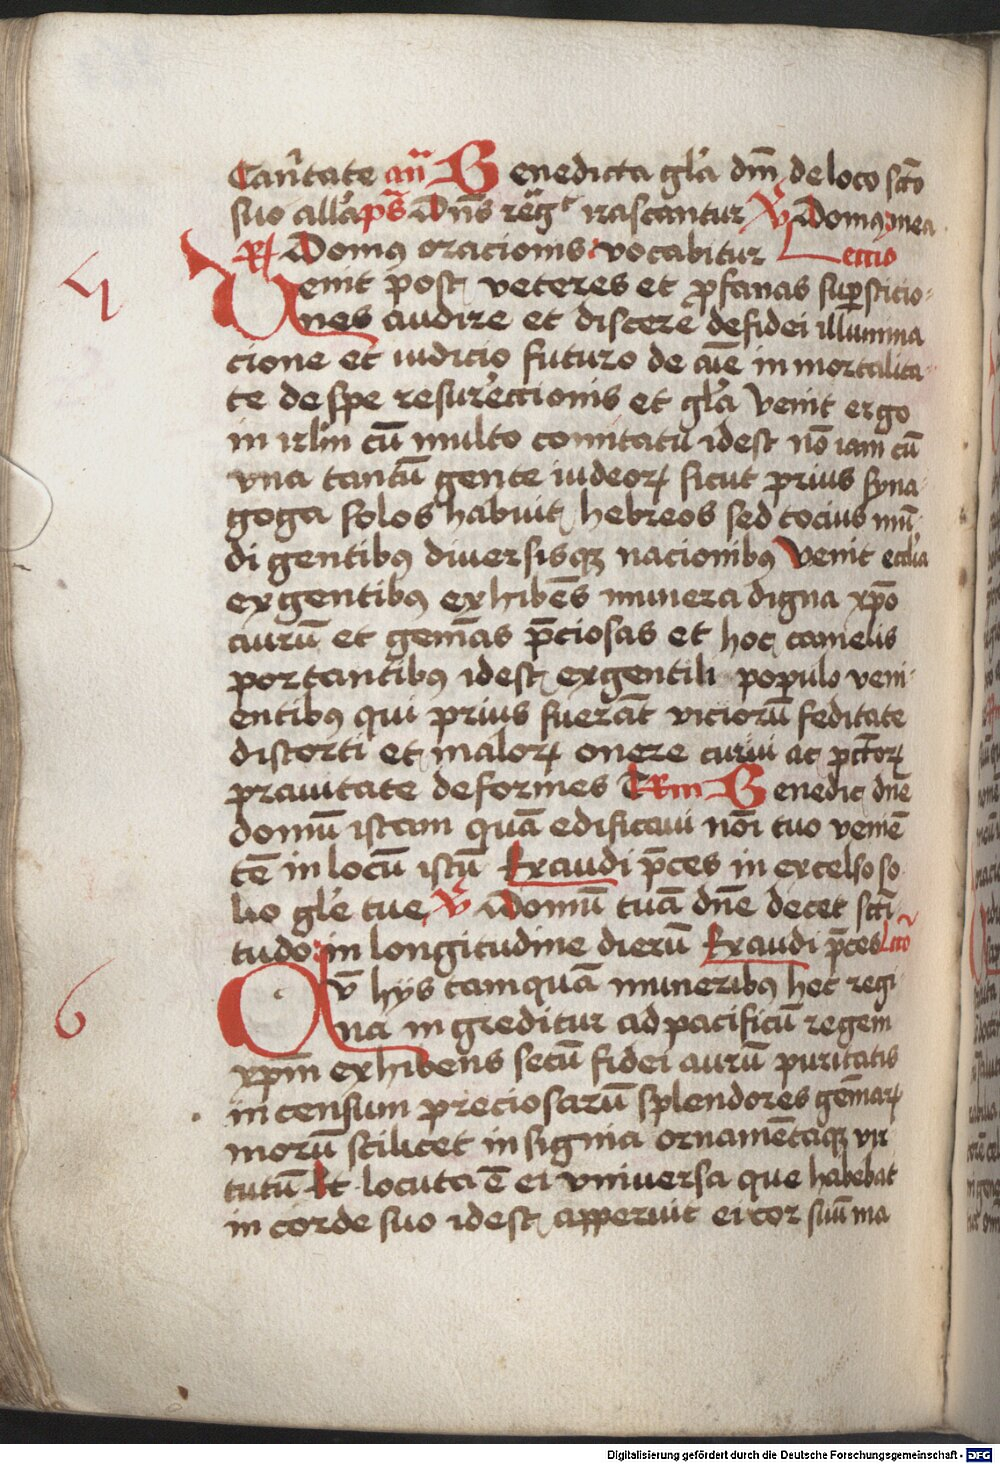 Cantate an̄ Benedicta gl'a dn̄i de loco scō
suo all'a ps̄ Dn̄s reg' irascantur V̄ Domus mea
R Domus oracionis vocabitur Leccio
Uenit post veteres et ꝓfanas suꝑsticio-
nes audire et discere de fidei illumina
cione et iudicio futuro de aīe inmortalita-
te de spe resurreccionis et gl'a Venit ergo
in irl'm cū multo comitatu idest nō iam cū
vna tantū gente iudeoꝝ sicut prius syna-
goga solos habuit hebreos sed tocius mū-
di gentibꝯ diuersisqꝫ nacionibꝯ Venit eccl'ia
ex gentibꝯ exhibēs munera digna xp̄o
aurū et gem̄as p̄ciosas et hoc camelis
portantibꝯ idest ex gentili populo veni-
entibꝯ qui prius fuerāt viciorū feditate
distorti et maloꝝ onere curui ac pctōꝝ
prauitate deformes Rm̄ Benedic dn̄e
domū istam quā edificaui nōi tuo veniē
tē in locū istū Exaudi p̄ces in excelso so
lio gl'e tue V̄ Domū tuā dn̄e decet scti-
tudo in longitudine dierū Exaudi p̄ces Lcō
Cū hys tamquā muneribꝯ hec regi
na ingreditur ad pacificū regem
xp̄m exhibens secū fidei aurū puritatis
incensum preciosarū splendores gem̄aꝝ
morū scilicet insignia ornamētaqꝫ vir
tutū Et locuta ē ei vniuersa que habebat
in corde suo idest apperuit ei cor suū ma
5
6
Digitalisierung gefördert durch die Deutsche Forschungsgemeinschaft - DFG